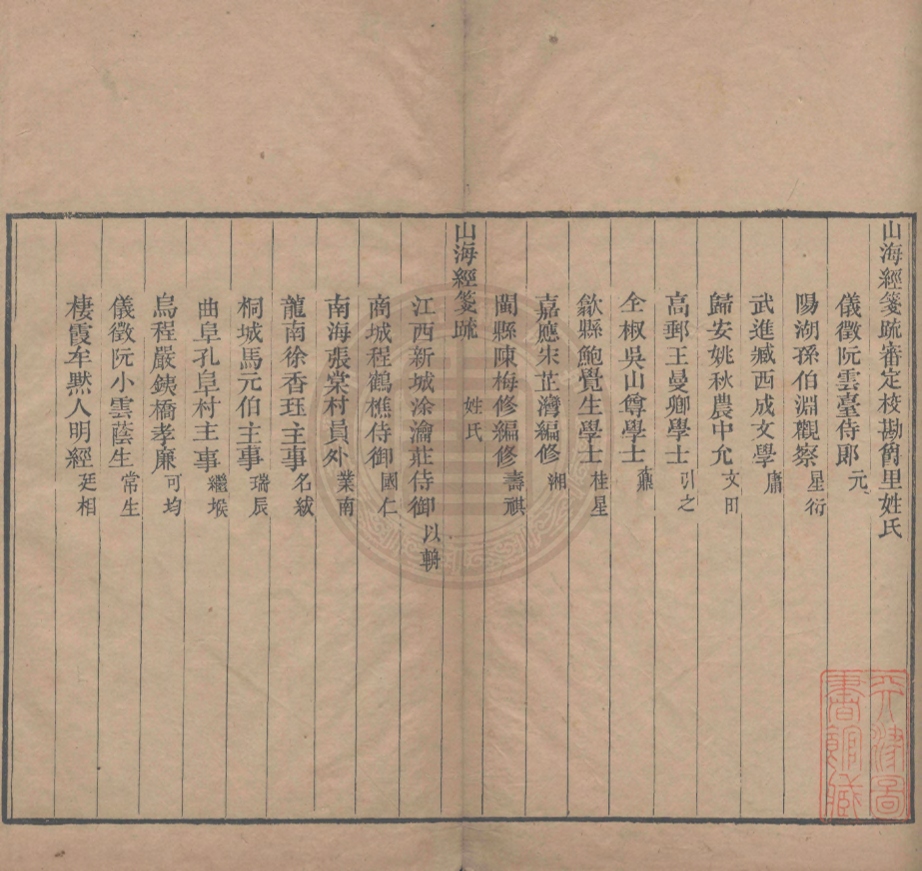 山海經箋疏審定校勘爵里姓氏
儀徵阮雲臺侍郎元
陽湖孫伯淵觀察星衍
武進臧西成文學庸
歸安姚秋農中允文田
高郵王曼卿學士引之
全椒吳山尊學士鼒
歙縣鮑覺生學士桂星
嘉應宋芷灣編修湘
閩縣陳梅修編修壽祺
山海經箋疏 姓氏
江西新城涂瀹莊侍御以輈
商城程鶴樵侍御國仁
南海張棠村員外業南
龍南徐香珏主事名紱
桐城馬元伯主事瑞辰
曲阜孔阜村主事繼堠
烏程嚴銕橋孝廉可均
儀徵阮小雲蔭生常生
棲霞牟黙人明經廷相
天津圖書館藏